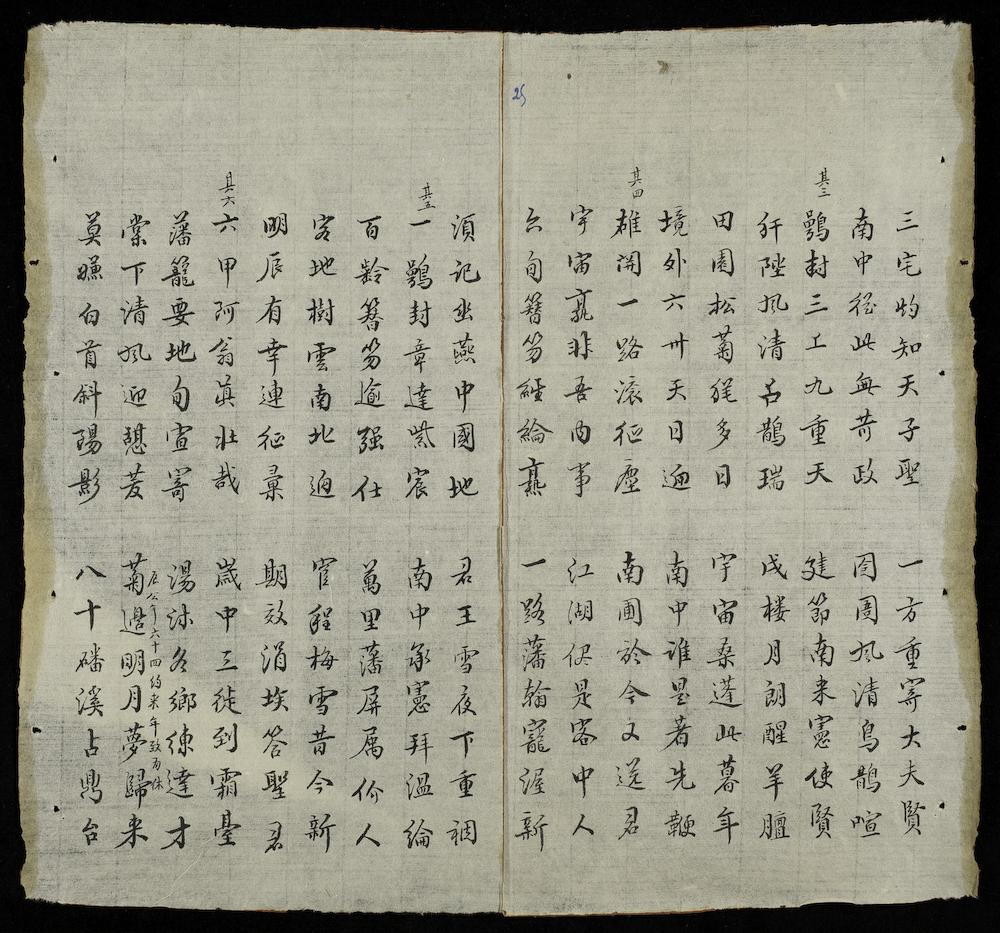 25
三宅灼知天子聖　一方重寄大夫賢
南中從此無苛政　囹圄風清烏鵲喧
其三
鶚封三上九重天　建節南來憲使賢
犴陛風清占鵲瑞　戍楼月朗醒羊膻
田園松菊猶多日　宇宙桑蓬此暮年
境外六卅天日迊　南中谁是著先鞭
其四
雄開一路滾征塵　南圃於今又送君
宇宙孰非吾內事　江湖侭是客中人
六旬簪笏經綸熟　一路藩翰寵渥新
須記幽燕中國地　君王雪夜下重裀
其五
一鶚封章達紫宸　南中承憲拜溫綸
百齡簪笏逾强仕　萬里藩屏属价人
客地樹雲南北逈　官程梅雪昔今新
明辰有幸連征彙　期效涓埃答聖君
其六
六甲阿翁真壮哉　歲中三徙到霜臺
藩籠要地旬宣寄　湯沐名鄉練達才
棠下清風迎憇茇　菊邉明月夢歸来
辰公年六十四約来年致為休
莫嫌白首斜陽影　八十磻溪占鼎台